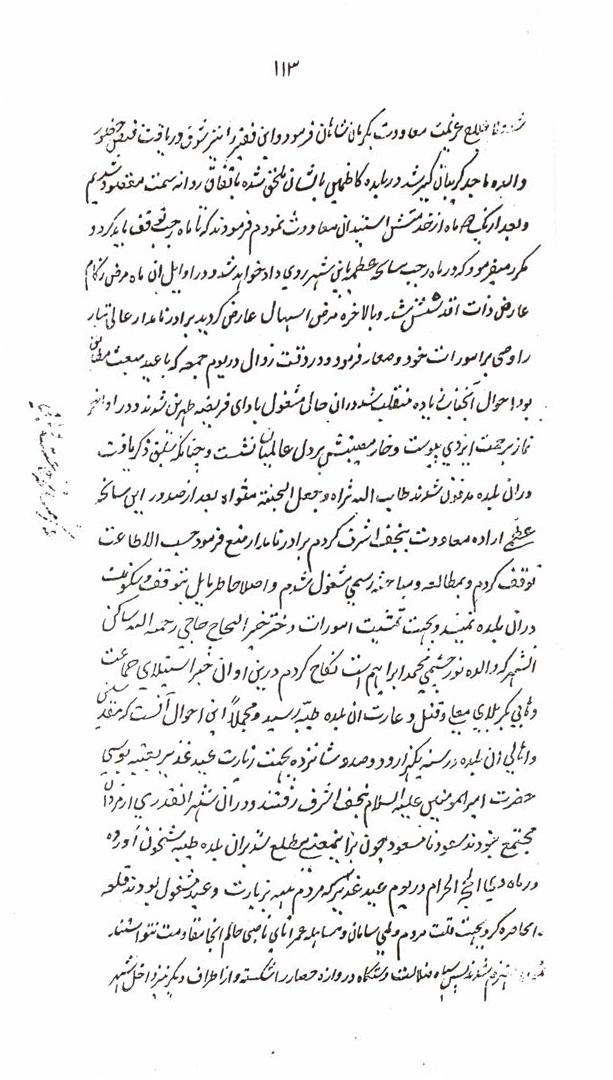 ۱۱۳
عزیمت معاودت بکرمانشاهان فرمود و این فقیر را نیز شوق دریافت فیض حضور
والده ماجد کریبان کیر شد در بلده کاظمین بایشان ملحق شده باتفاق روانه سمت مقصود شدیم
و بعد از یک ماه از خدمتش استیذان معاودت نمودم فرمودند که تا ماه رجب توقف باید کرد و
مکرر میفرمود که در ماه رجب سانحه عظیمه باین شهر روی داد خواهد شد و در اوایل ان ماه مرض زکام
عارض ذات اقدسش شد و بالاخره مرض اسهال عارض کردید برادر نامدار عالی تبار
را وصی بر امورات خود و صغار فرمود و در وقت زوال در یوم جمعه که با عید مبعث مطابق
بود احوال انجناب زیاده منقلب شد در ان حالی مشغول بادای فریضه ظهرین شدند و در اواخر
نماز برحمت ایزدی پیوست و خار مصیبتش بر دل عالمیان نشست و چنانکه سبق ذکر یافت
در ان بلده مدفون شدند طاب الله ثراه و جعل الجنة مثواه بعد از صدور این سانحه
عظمی اراده معاودت بنجف اشرف کردم برادر نامدار منع فرمود حسب الاطاعت
توقف کردم و بمطالعه و مباحثه رسمی مشغول شدم و اصلا خاطر مایل بتوقف و سکونت
در ان بلده نمیشد و بجهت تمشیت امورات دختر خیر الحاج حاجی رحمه الله ساکن
انشهر که والده نور چشمی محمد ابراهیم است نکاح کردم درین اوان خبر استیلای جماعت
وهابی بکربلای معلی و قتل و غارت ان بلده طیبه رسید و مجملا این احوال آنست که مقدسین
و اهالی ان بلده در سنه یکهزار و دوصد و شانزده بجهت زیارت عید غدیر بعتبه بوسی
حضرت امیر المومنین علیه السلام بنجف اشرف رفتند و در ان شهر انقدری از مردان
مجتمع نبودند سعود نا مسعود چون براینمعنی مطلع شد بران بلده طیبه شبخون آورده
در ماه ذی الحجة الحرام در یوم عید غدیر که مردم همه بزیارت و عید مشغول بودند قلعه
را محاصره کرد بجهت قلت مردم و بی سامانی و مساهله عمر اقای ناصبی حاکم انجا مقاومت نتوانستند
شدند پس سپاه ضلالت دستگاه دروازه حصار را شکسته و از اطراف دیکر نیز داخل شهر